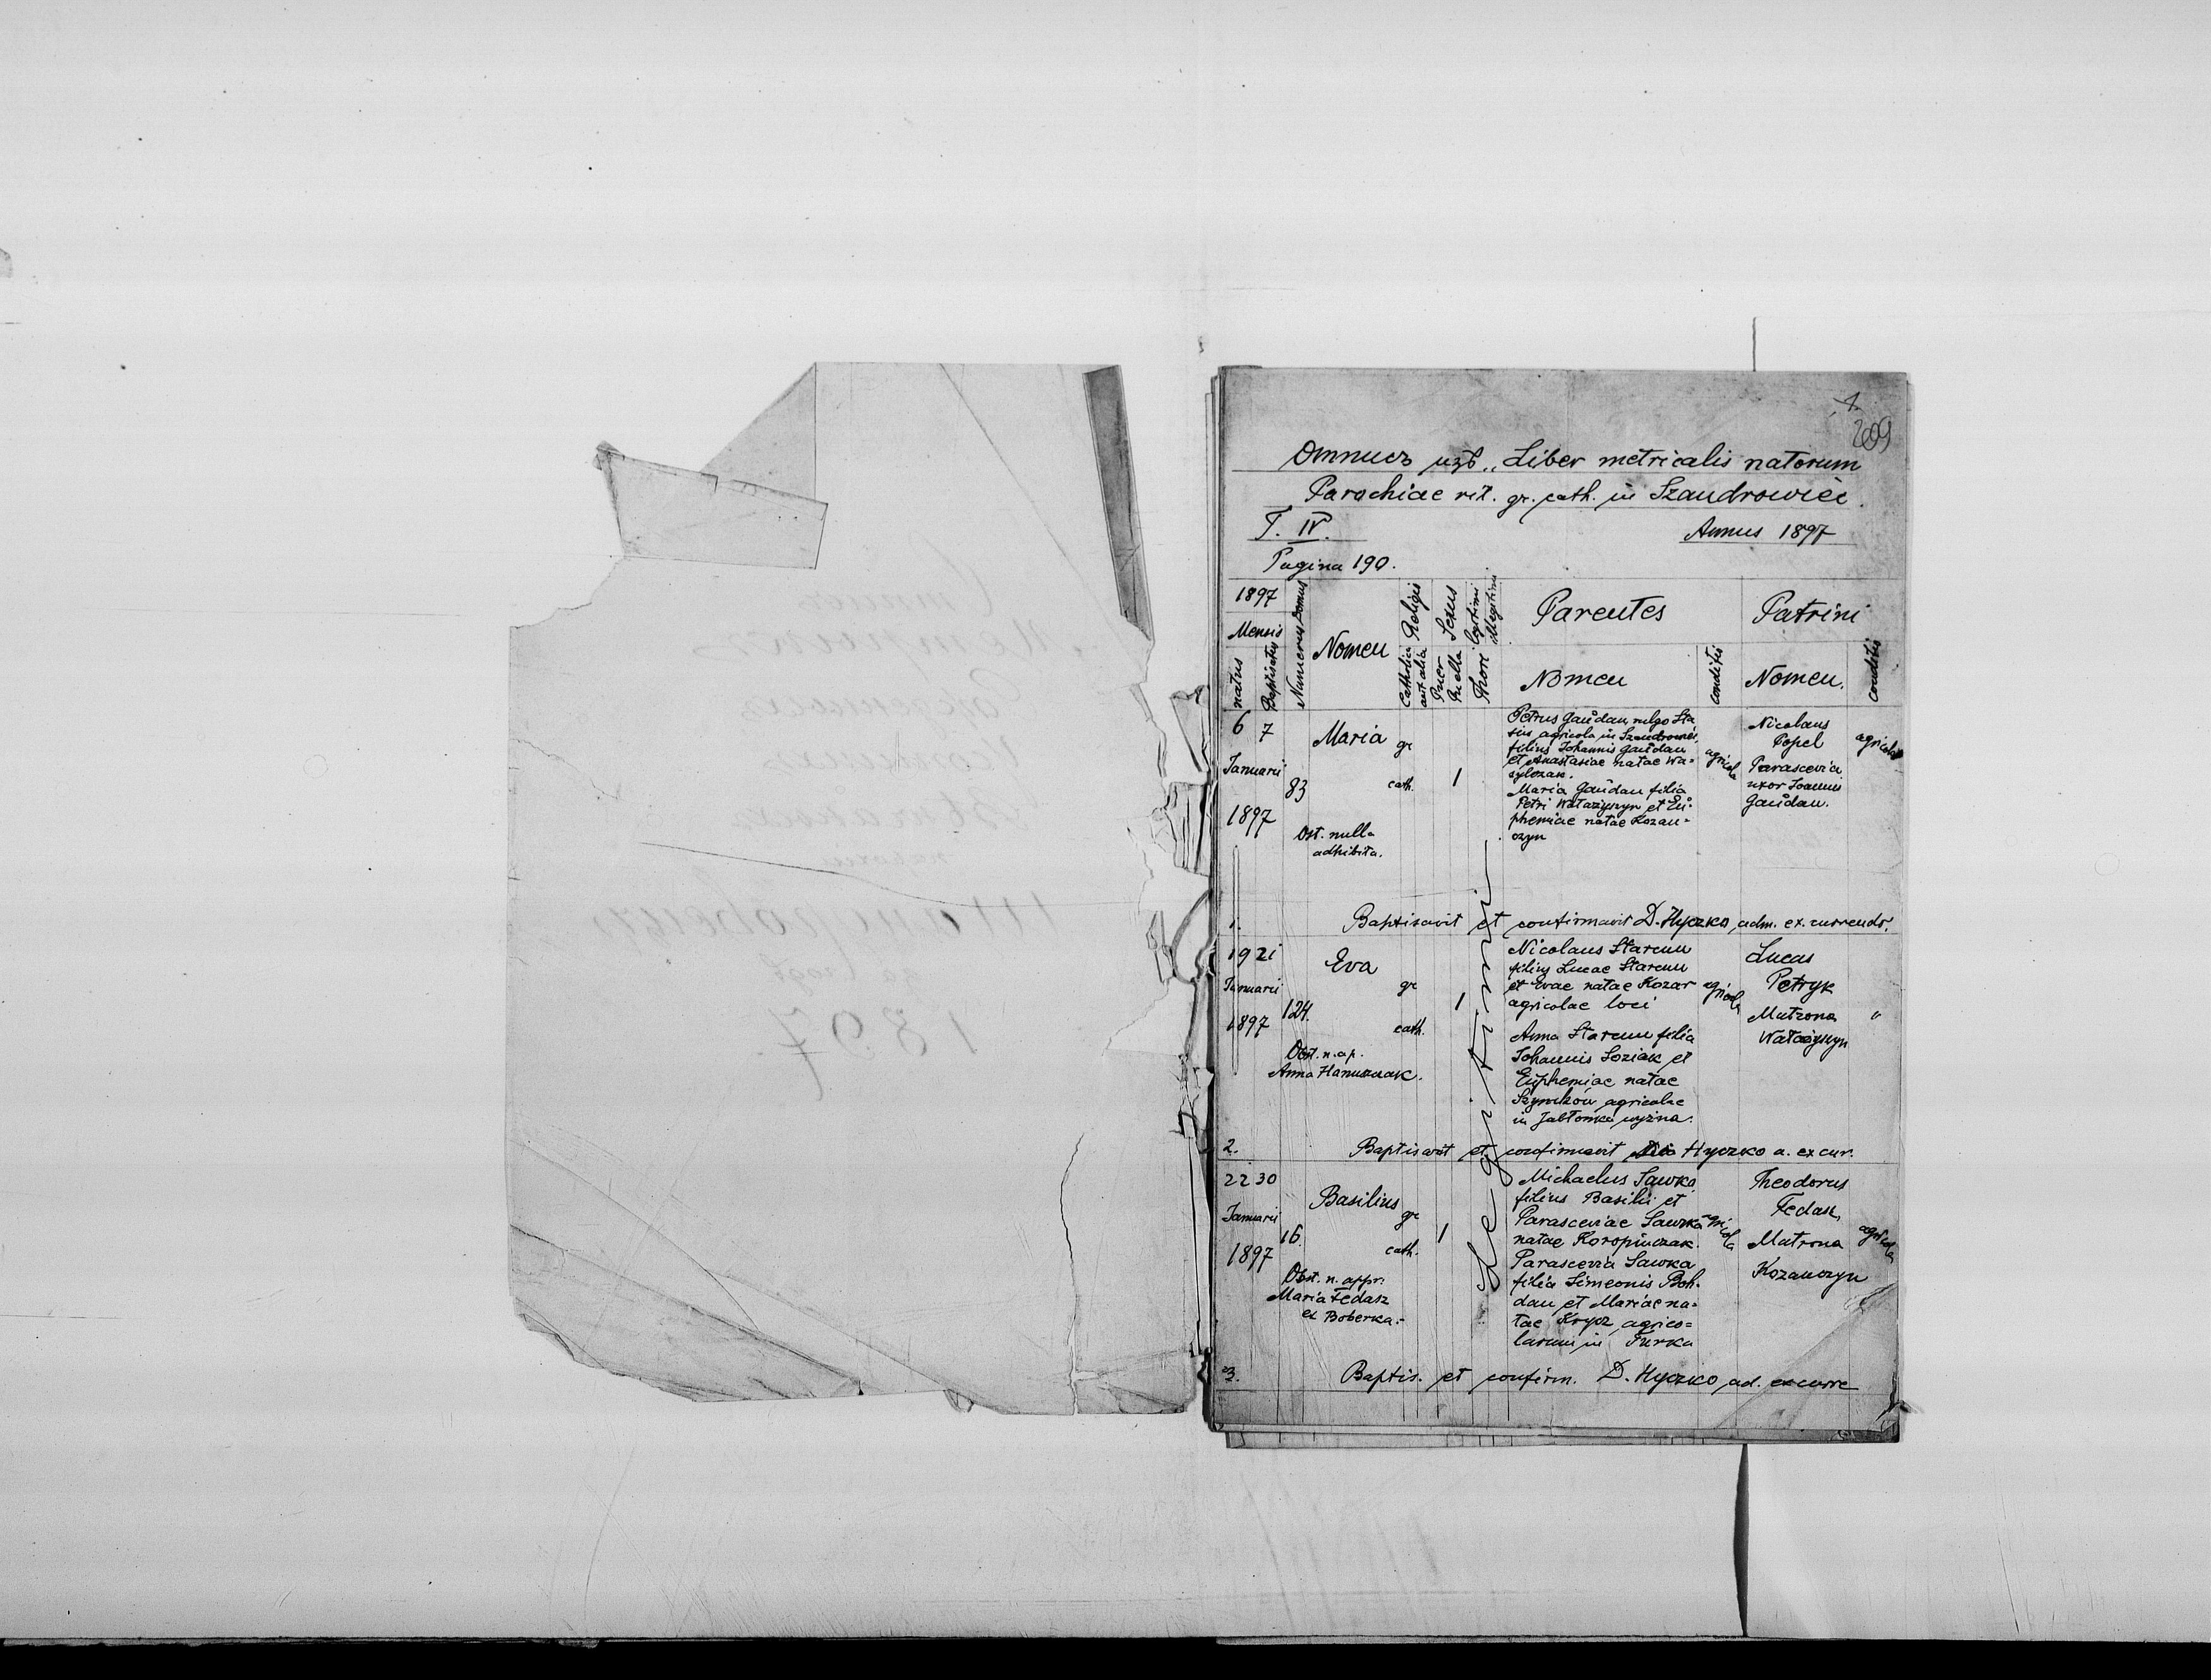 209
Отпись изъ „Liber metricalis natorum
Parochiae rit. gr. cath. in Szandrowiec.
T. IV.
Annus 1897
Pagina 190.
1897
Mensis
natus
Baptisatus
Numerus Domus
Nomen
Religio
Catholica
aut alia
Sexus
Puer
Puella
Thori
legitimi
illegitimi
Parentes
Nomen
conditio
Patrini
Nomen.
conditio
6 7
Januarii
1897
83
Maria
gr
cath.
1
Ost. nulla
adhibita.
Petrus Gaudan, vulgo Sta
sin agricola in Szandrowiec,
filius Johannis Gaudan
et Anastasiae natae Wa-
sylczak.
Maria Gaudan filia
Petri Watażyszyn et Eu-
phemiae natae Kozan-
czyn
agricola
Nicolaus
Popel
Parascevia
uxor Joannis
Gaudan.
agricola
1. Baptisavit et confirmavit D. Hyczko, adm. ex. currendo.
19 21
Januarii
1897
124.
Eva
gr
cath.
1
Obst. n. ap.
Anna Hanuszczak.
Nicolaus
filius Lucae
et Evae natae Kozar
agricolae loci
Anna filia
Johannis Soziak et
Euphemiae natae
agricolae
in Jabłonka wyżna.
agricola
Lucas
Petryk
Matrona
Watażyszyn
"
2. Baptisavit et confirmavit Hyczko a. excur.
22 30
Januarii
1897
16.
Basilius
gr
cath.
1
Obst. n. appr.
Maria Fedasz
ex Boberka.
Michaelus Sawka
filius Basilii et
Parasceviae Sawka
natae Koropiuczak.
Parascevia Sawka
filia Simeonis Boh-
dan et Mariae na-
tae Krycz, agrico-
larum in Turka
agricola
Theodorus
Fedasz,
Matrona
Kozanczyn
agricola
Legitimi
3. Baptis. et confirm. D. Hyczko ad. excurre
1897